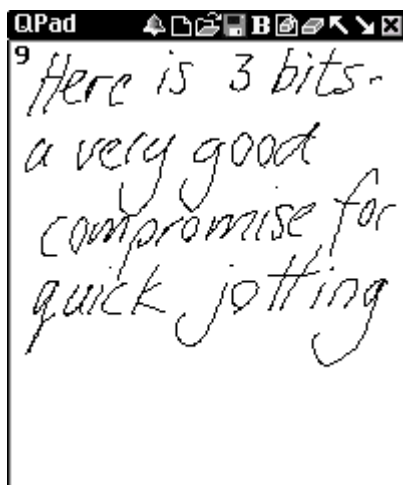 QPad B
9
Here is 3 bits-
a very good
compromise for
quick jotting